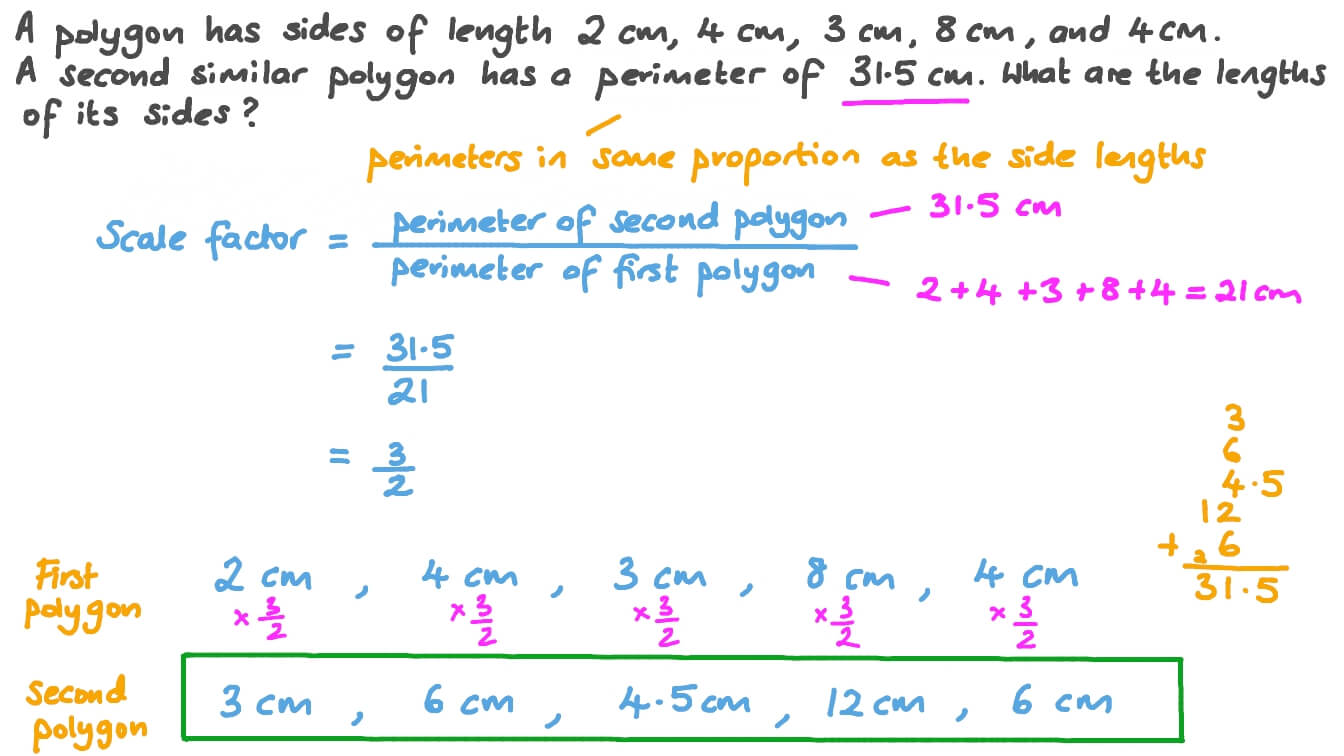 A polygon has sides of length 2 cm, 4 cm, 3 cm, 8 cm, and 4 cm.
A second similar polygon has a perimeter of 31.5 cm. What are the lengths
of its sides?
perimeters in same proportion as the side lengths
Scale factor = perimeter of second polygon / perimeter of first polygon
31.5 cm
2 + 4 + 3 + 8 + 4 = 21 cm
= 31.5 / 21
= 3 / 2
3
6
4.5
12
+ 2 6
31.5
First polygon 2 cm , 4 cm , 3 cm , 8 cm , 4 cm
× 3/2 × 3/2 × 3/2 × 3/2 × 3/2
Second polygon 3 cm , 6 cm , 4.5 cm , 12 cm , 6 cm